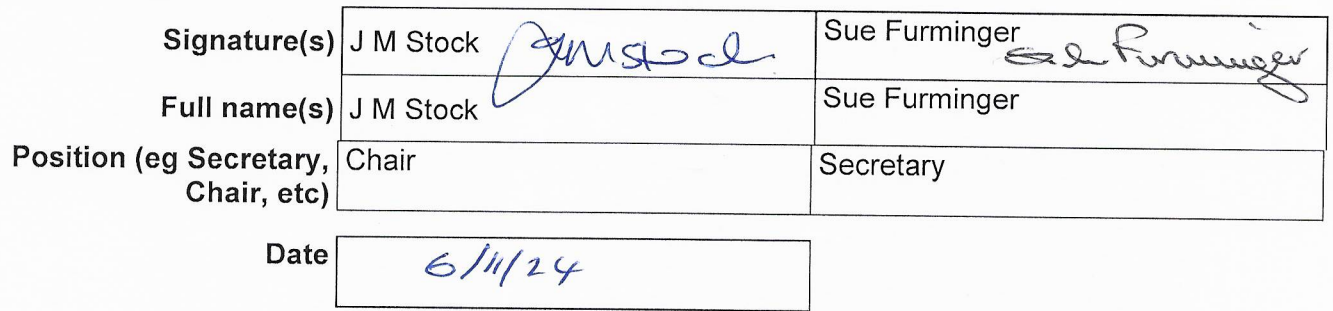 Signature(s) J M Stock JMStock Sue Furminger Sue Furminger
Full name(s) J M Stock Sue Furminger
Position (eg Secretary, Chair Secretary
Chair, etc)
Date 6/11/24